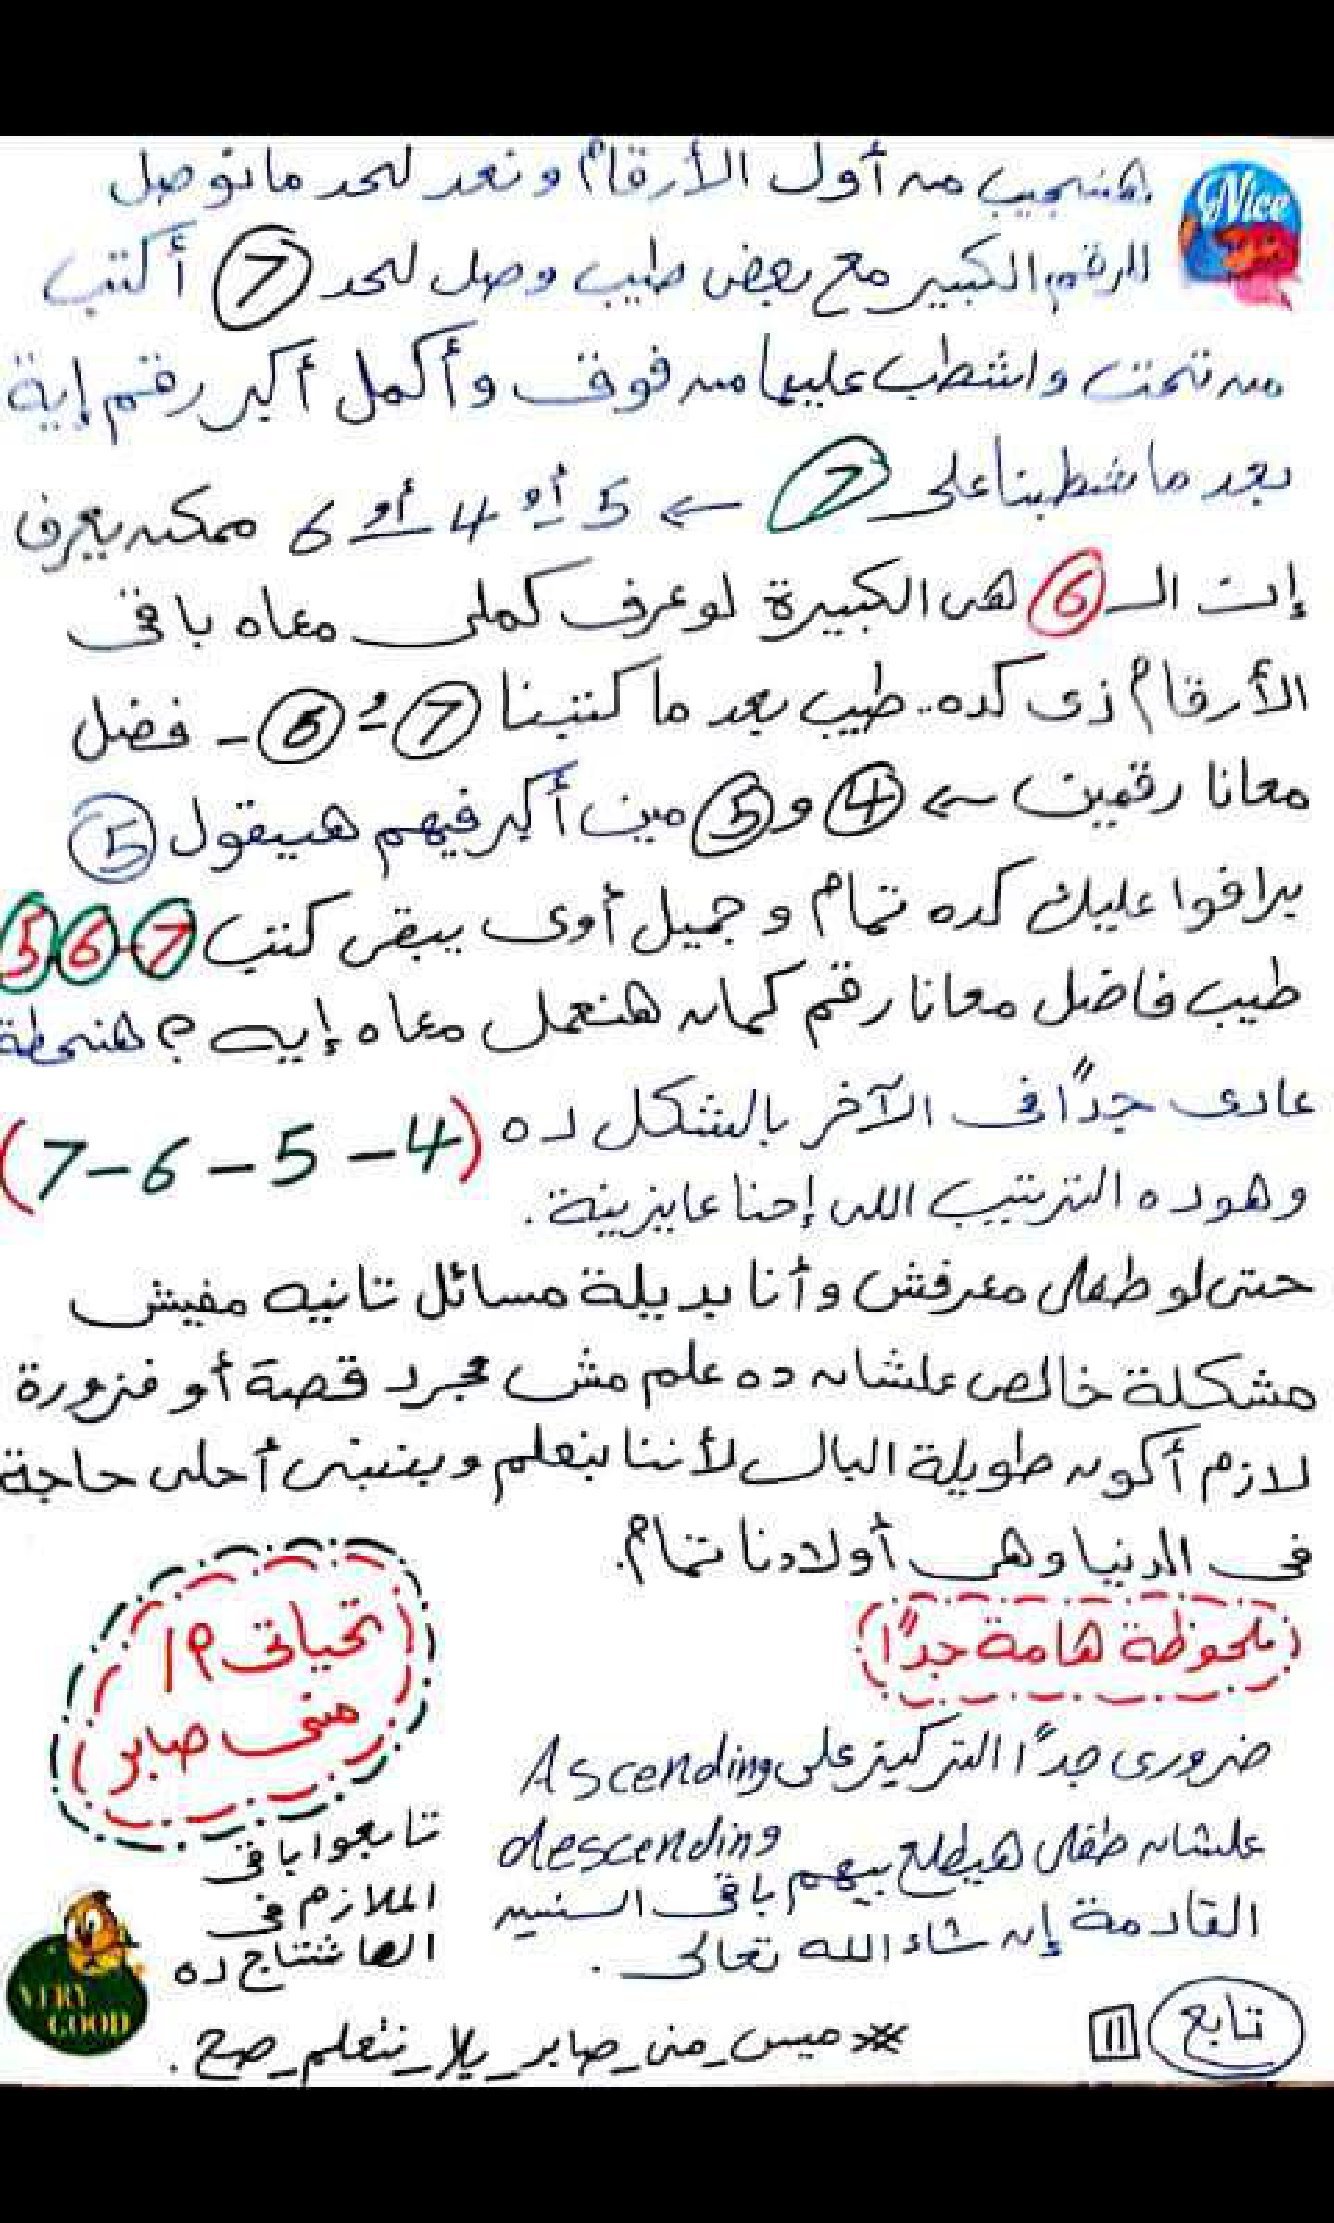 هنجيب من أول الأرقام ونعد لحد ما نوصل
Nice
للرقم الكبير مع بعض طيب وصل لحد 7 أكتب
من تحت واشطب عليها من فوق وأكمل أكبر رقم إية
بعد ما شطبنا على 7 ← 5 أو 4 أو 6 ممكن يعرف
إن الـ 6 هى الكبيرة لو عرف كملى معاه باقى
الأرقام زى كده.. طيب بعد ما كتبنا 7 و 6 - فضل
معانا رقمين ← 4 و 5 مين أكبر فيهم هيقول 5
برافوا عليك كده تمام وجميل أوى يبقى كتب 7 6 5
طيب فاضل معانا رقم كمان هنعمل معاه إيه ؟ هنحطة
عادى جدًا فى الآخر بالشكل ده (7-6-5-4)
وهو ده الترتيب اللى إحنا عايزينة.
حتى لو طفلى معرفش وأنا بديلة مسائل تانيه مفيش
مشكلة خالص علشان ده علم مش مجرد قصة أو فزورة
لازم أكون طويلة البال لأننا بنعلم وبنبنى أحلى حاجة
فى الدنيا وهى أولادنا تمام.
(ملحوظة هامة جدًا)
ضرورى جدًا التركيز على Ascending
descending
علشان طفلى هيطلع بيهم باقى السنين
القادمة إن شاء الله تعالى.
تحياتى م/
منى صابر
تابعوا باقى
الملازم فى
الهاشتاج ده
VERY
GOOD
تابع 11
#ميس_منى_صابر_يلا_نتعلم_صح.